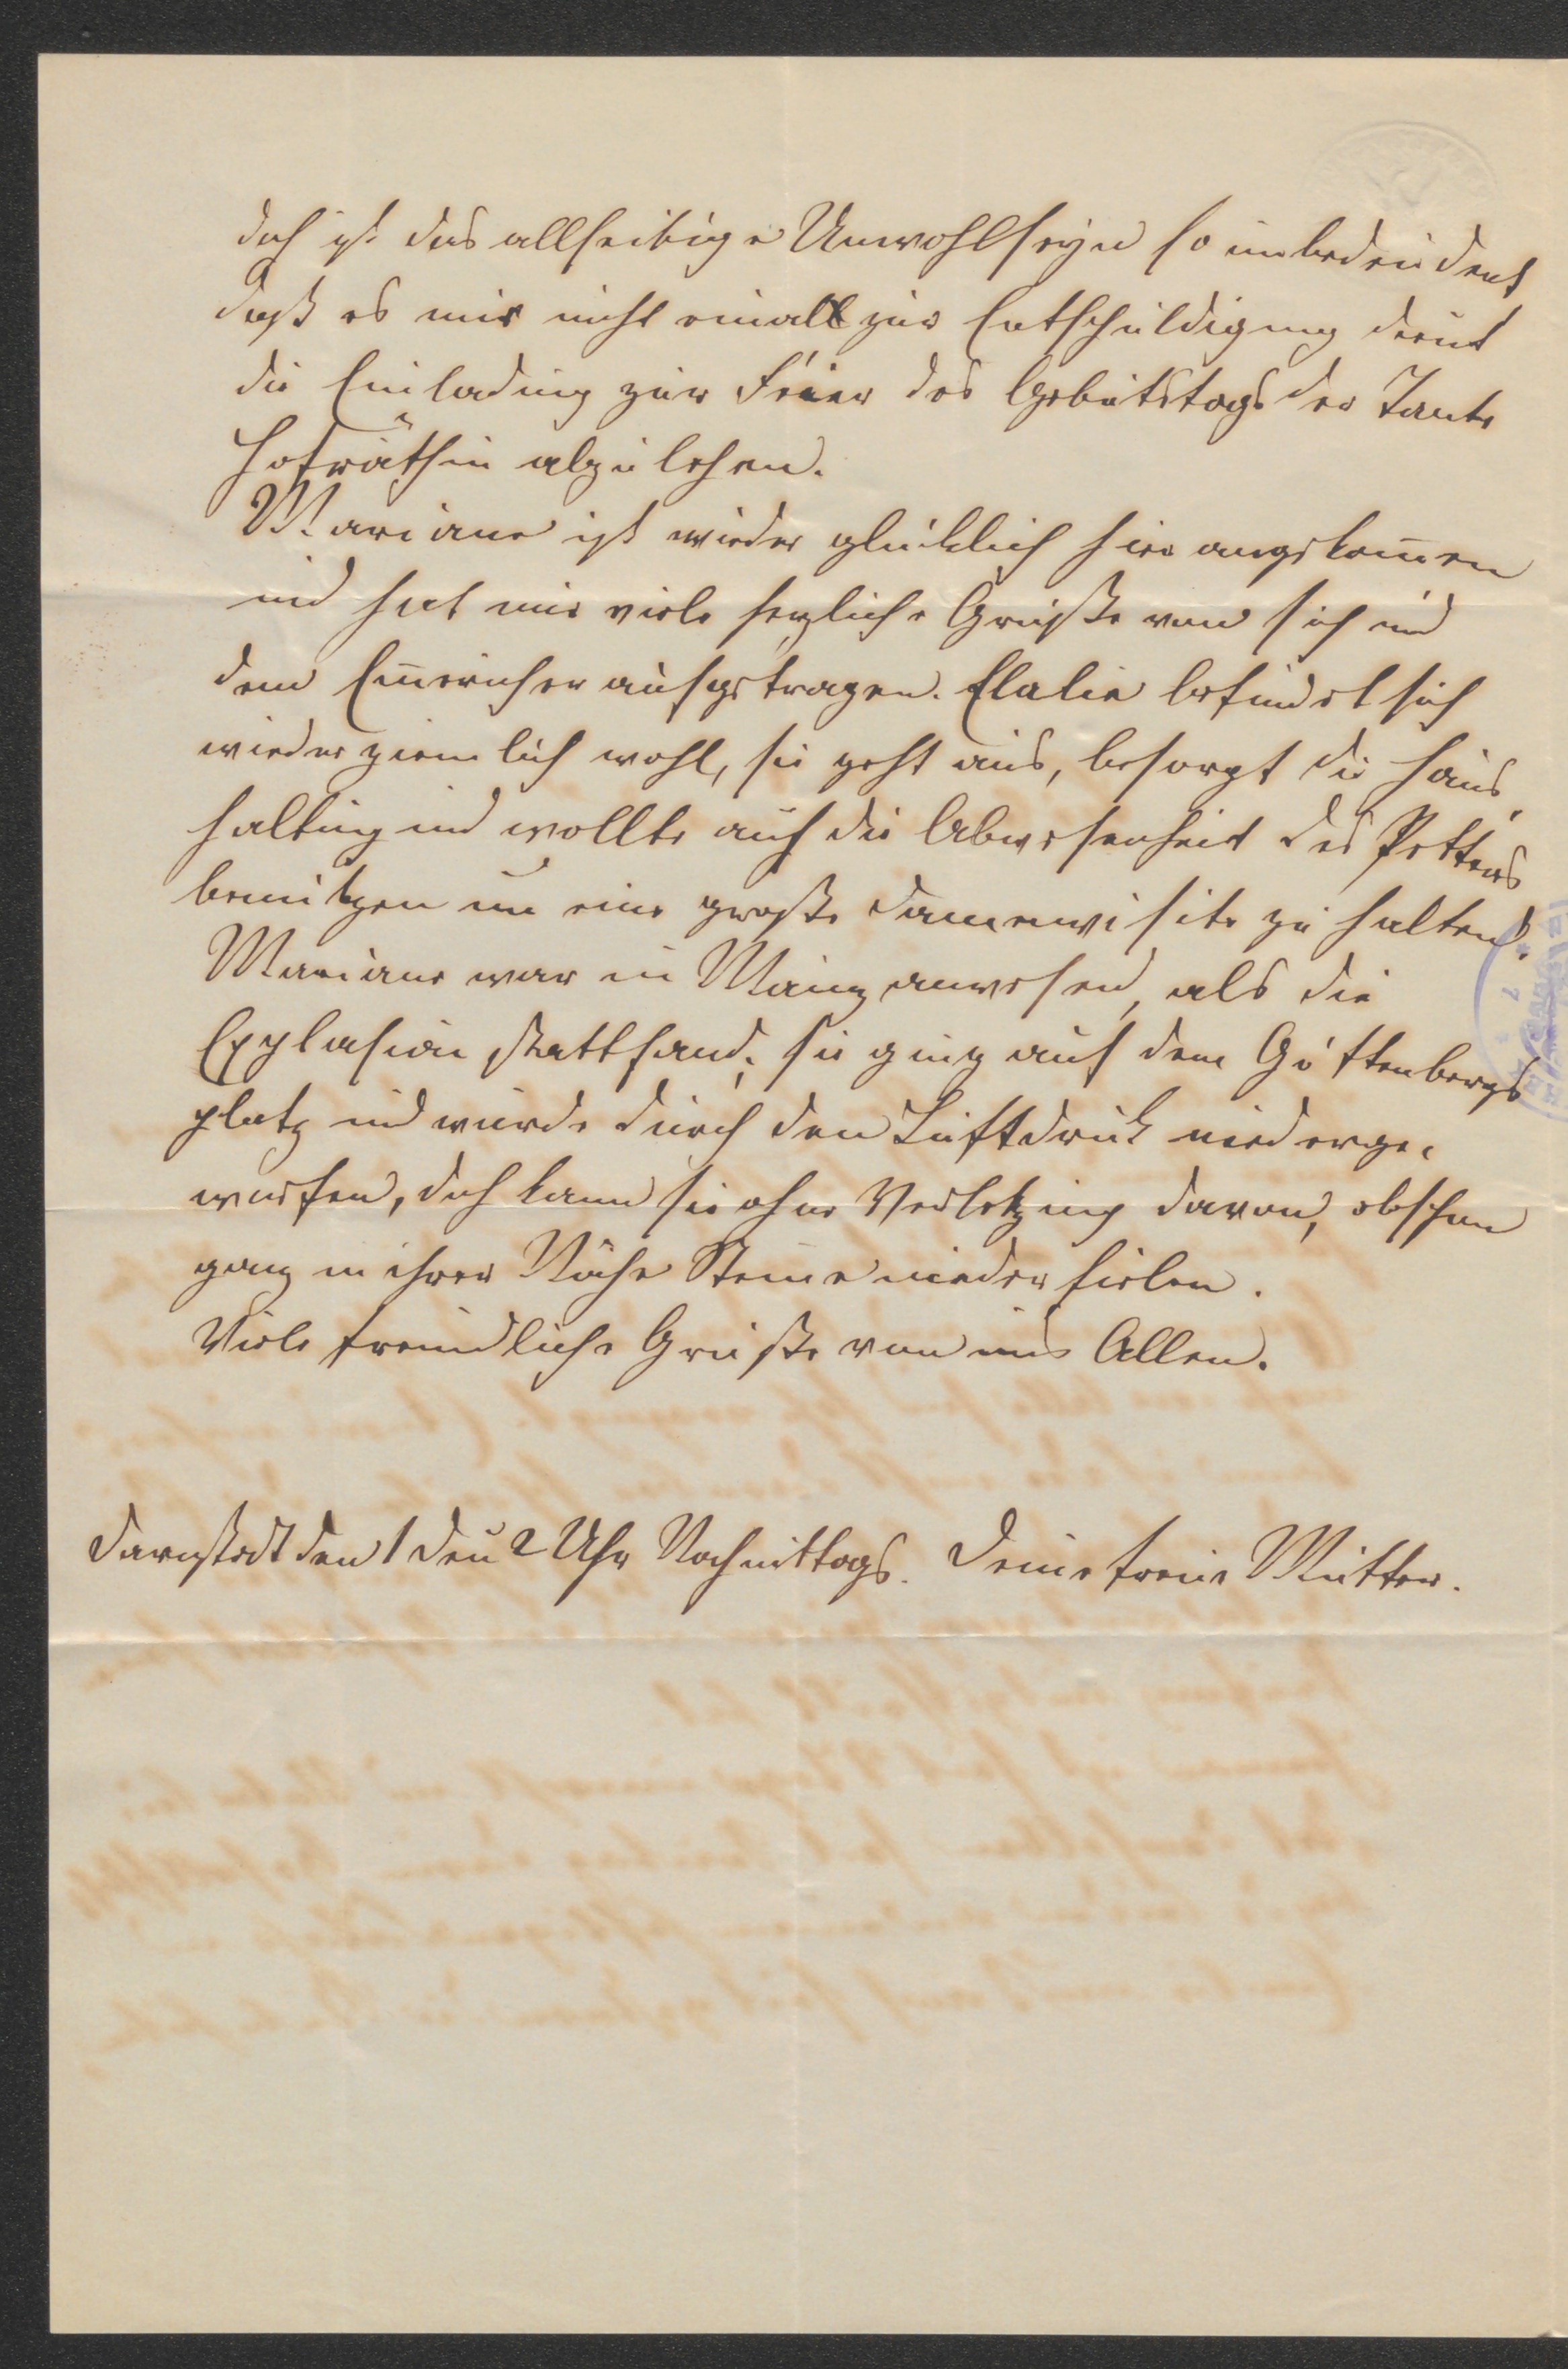 doch ist das allseitige Unwohlseyn so unbedeudent
daß es mir nicht einall zur Entschuldigung dient
die Einladung zur Feier des Gebutstags der Tante
Hofräthin abzulehen.
Mariane ist wieder glücklich hier angekom̄en
und hat mir viele herzliche Grüße von sich und
dem Em̄ericher aufgetragen. Elalie befindet sich
wieder ziemlich wohl, sie geht aus, besorgt die Haus
haltung und wollte auch die Abwesenheit des Vetters
benützen um eine große Damenvisite zu halten.
Mariane war in Mainz anwesend, als die
Explosion stattfand; sie ging auf dem Guttenbergs
platz und wurde durch den Luftdruck niederge-
worfen, doch kam sie ohne Verletzung davon, obschon
ganz in ihrer Nähe Steine nieder fielen.
Viele freundliche Grüße von uns Allen.
Darmstadt den 1 Deu 2 Uhr Nachmittags. Deine treue Mutter.